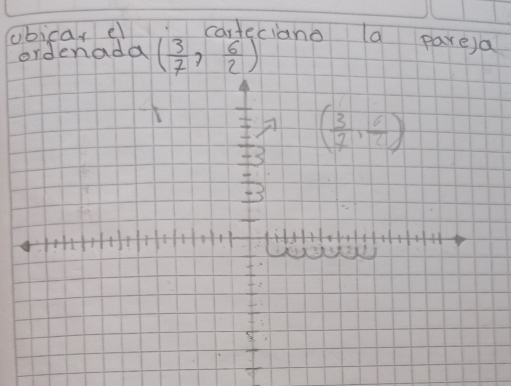 ubicar el carteciano la pareja
ordenada (3/7, 6/2)
(3/7, 6/2)